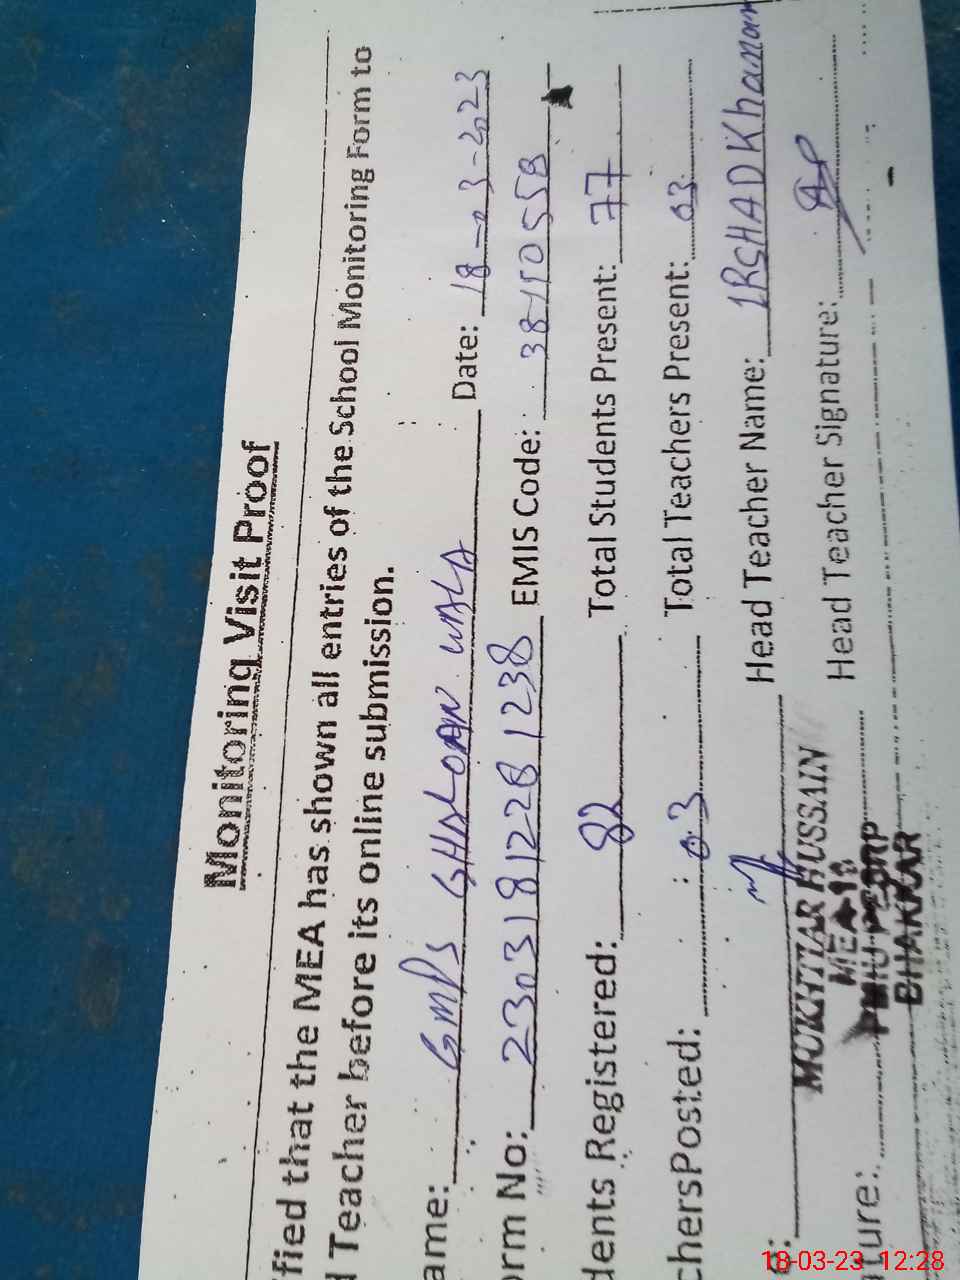 Monitoring Visit Proof
fied that the MEA has shown all entries of the School Monitoring Form to
d Teacher before its online submission.
ame: GMPS WALA Date: 18-03-2023
orm No: 23031812281238 EMIS Code: 38110559
dents Registered: 82 Total Students Present: 77
chersPosted: 03 Total Teachers Present: 03
Head Teacher Name: IRSHAD Khanam
MUKHTIAR HUSSAIN
MEA
ture: Head Teacher Signature:
BHAKKAR
18-03-23 12:28